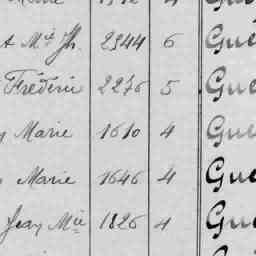 t Mie Jh. 2344 6 Gue
Frédéric 2276 5 Gue
Marie 1610 4 Gue
Marie 1646 4 Gue
Jean Mie 1826 4 Gue